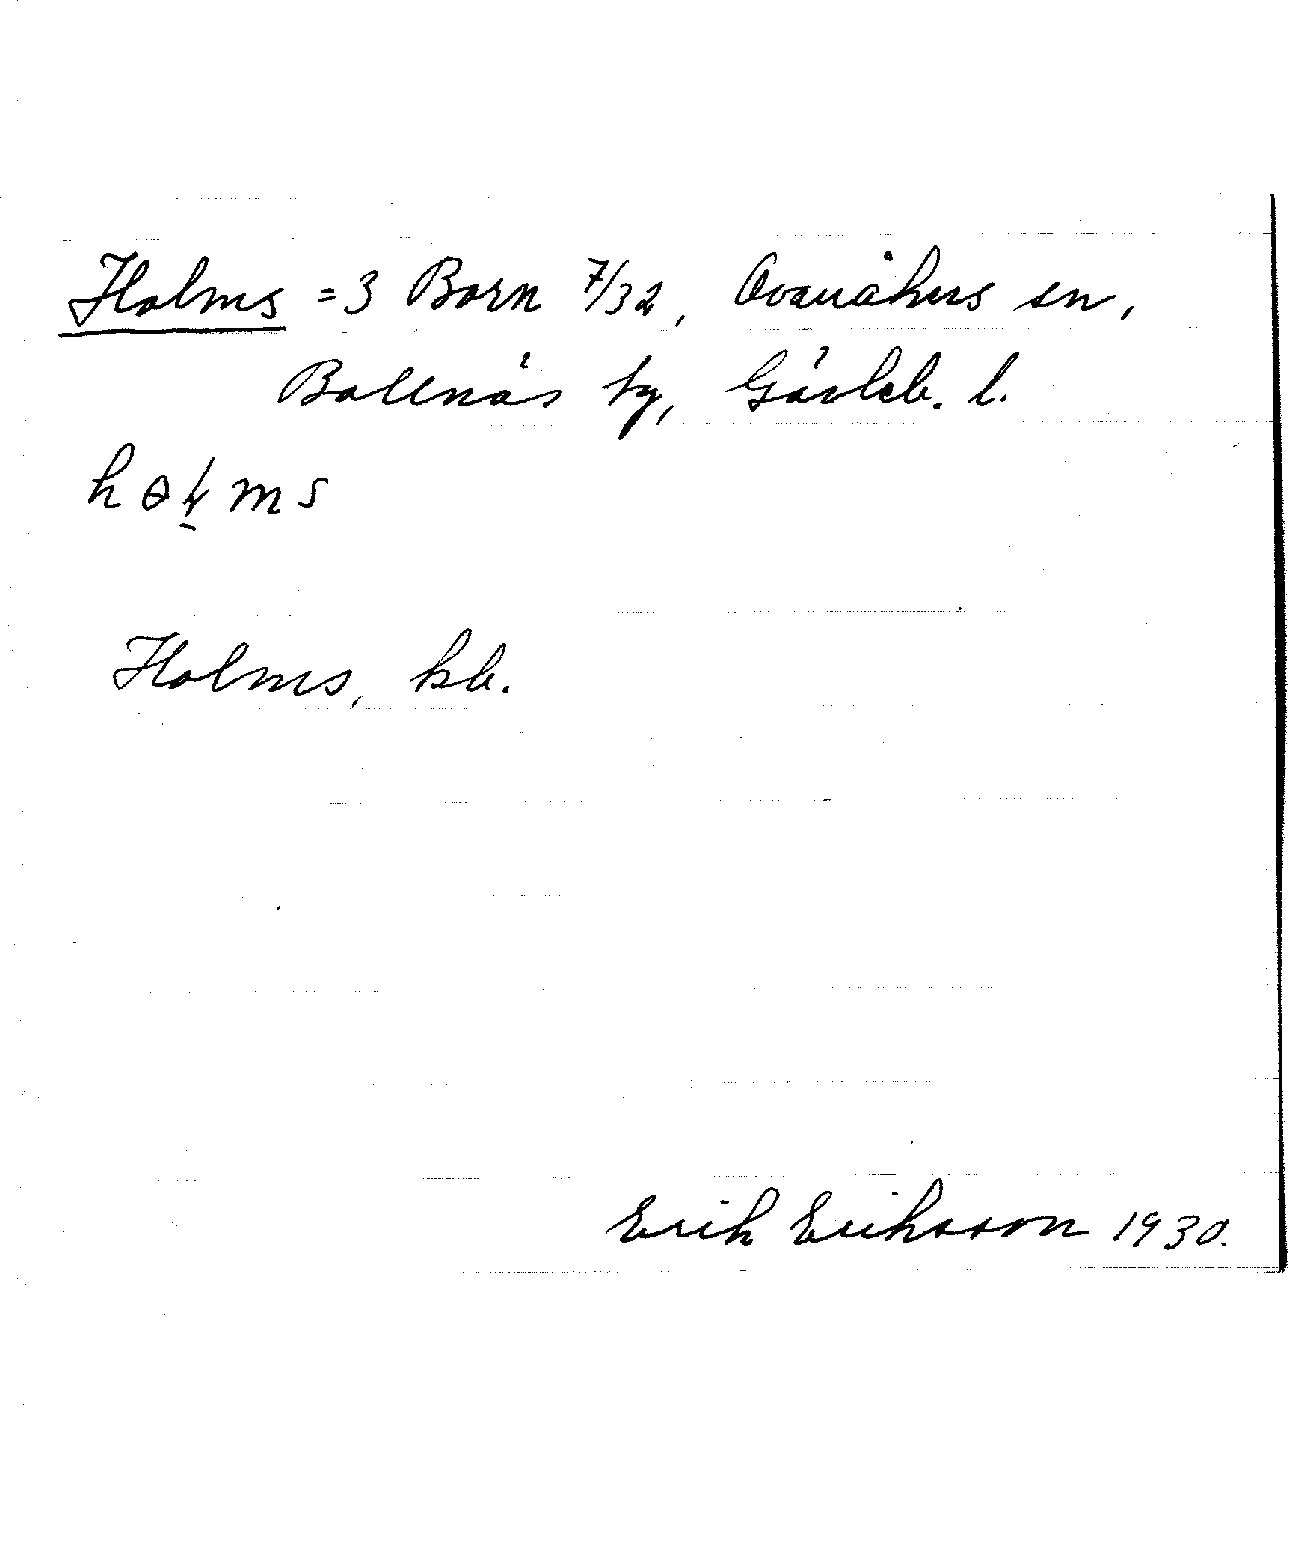 Holms = 3 Born 7/32, Ovanåkers sn,
Bollnäs tg, Gävleb. l.
hɵłms
Holms, kb.
Erik Eriksson 1930.